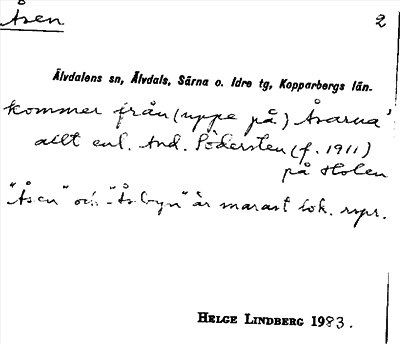 Åsen 2
Älvdalens sn, Älvdals, Särna o. Idre tg, Kopparbergs län.
kommer från (uppe på) Åsarna'
allt enl. And. Södersten (f. 1911)
på Holen
"Åsen" och "Åsbyn" är marast lok. uspr.
HELGE LINDBERG 1983.